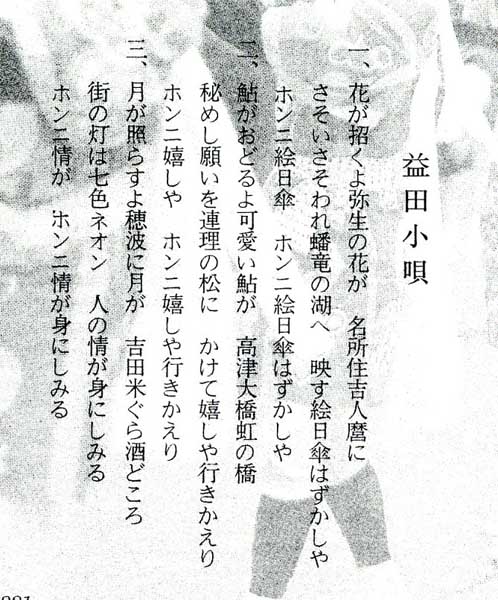 益田小唄
一、花が招くよ弥生の花が　名所住吉人麿に
さそいさそわれ蟠竜の湖へ　映す絵日傘はずかしや
ホンニ絵日傘　ホンニ絵日傘はずかしや
二、鮎がおどるよ可愛い鮎が　高津大橋虹の橋
秘めし願いを連理の松に　かけて嬉しや行きかえり
ホンニ嬉しや　ホンニ嬉しや行きかえり
三、月が照らすよ穂波に月が　吉田米ぐら酒どころ
街の灯は七色ネオン　人の情が身にしみる
ホンニ情が　ホンニ情が身にしみる